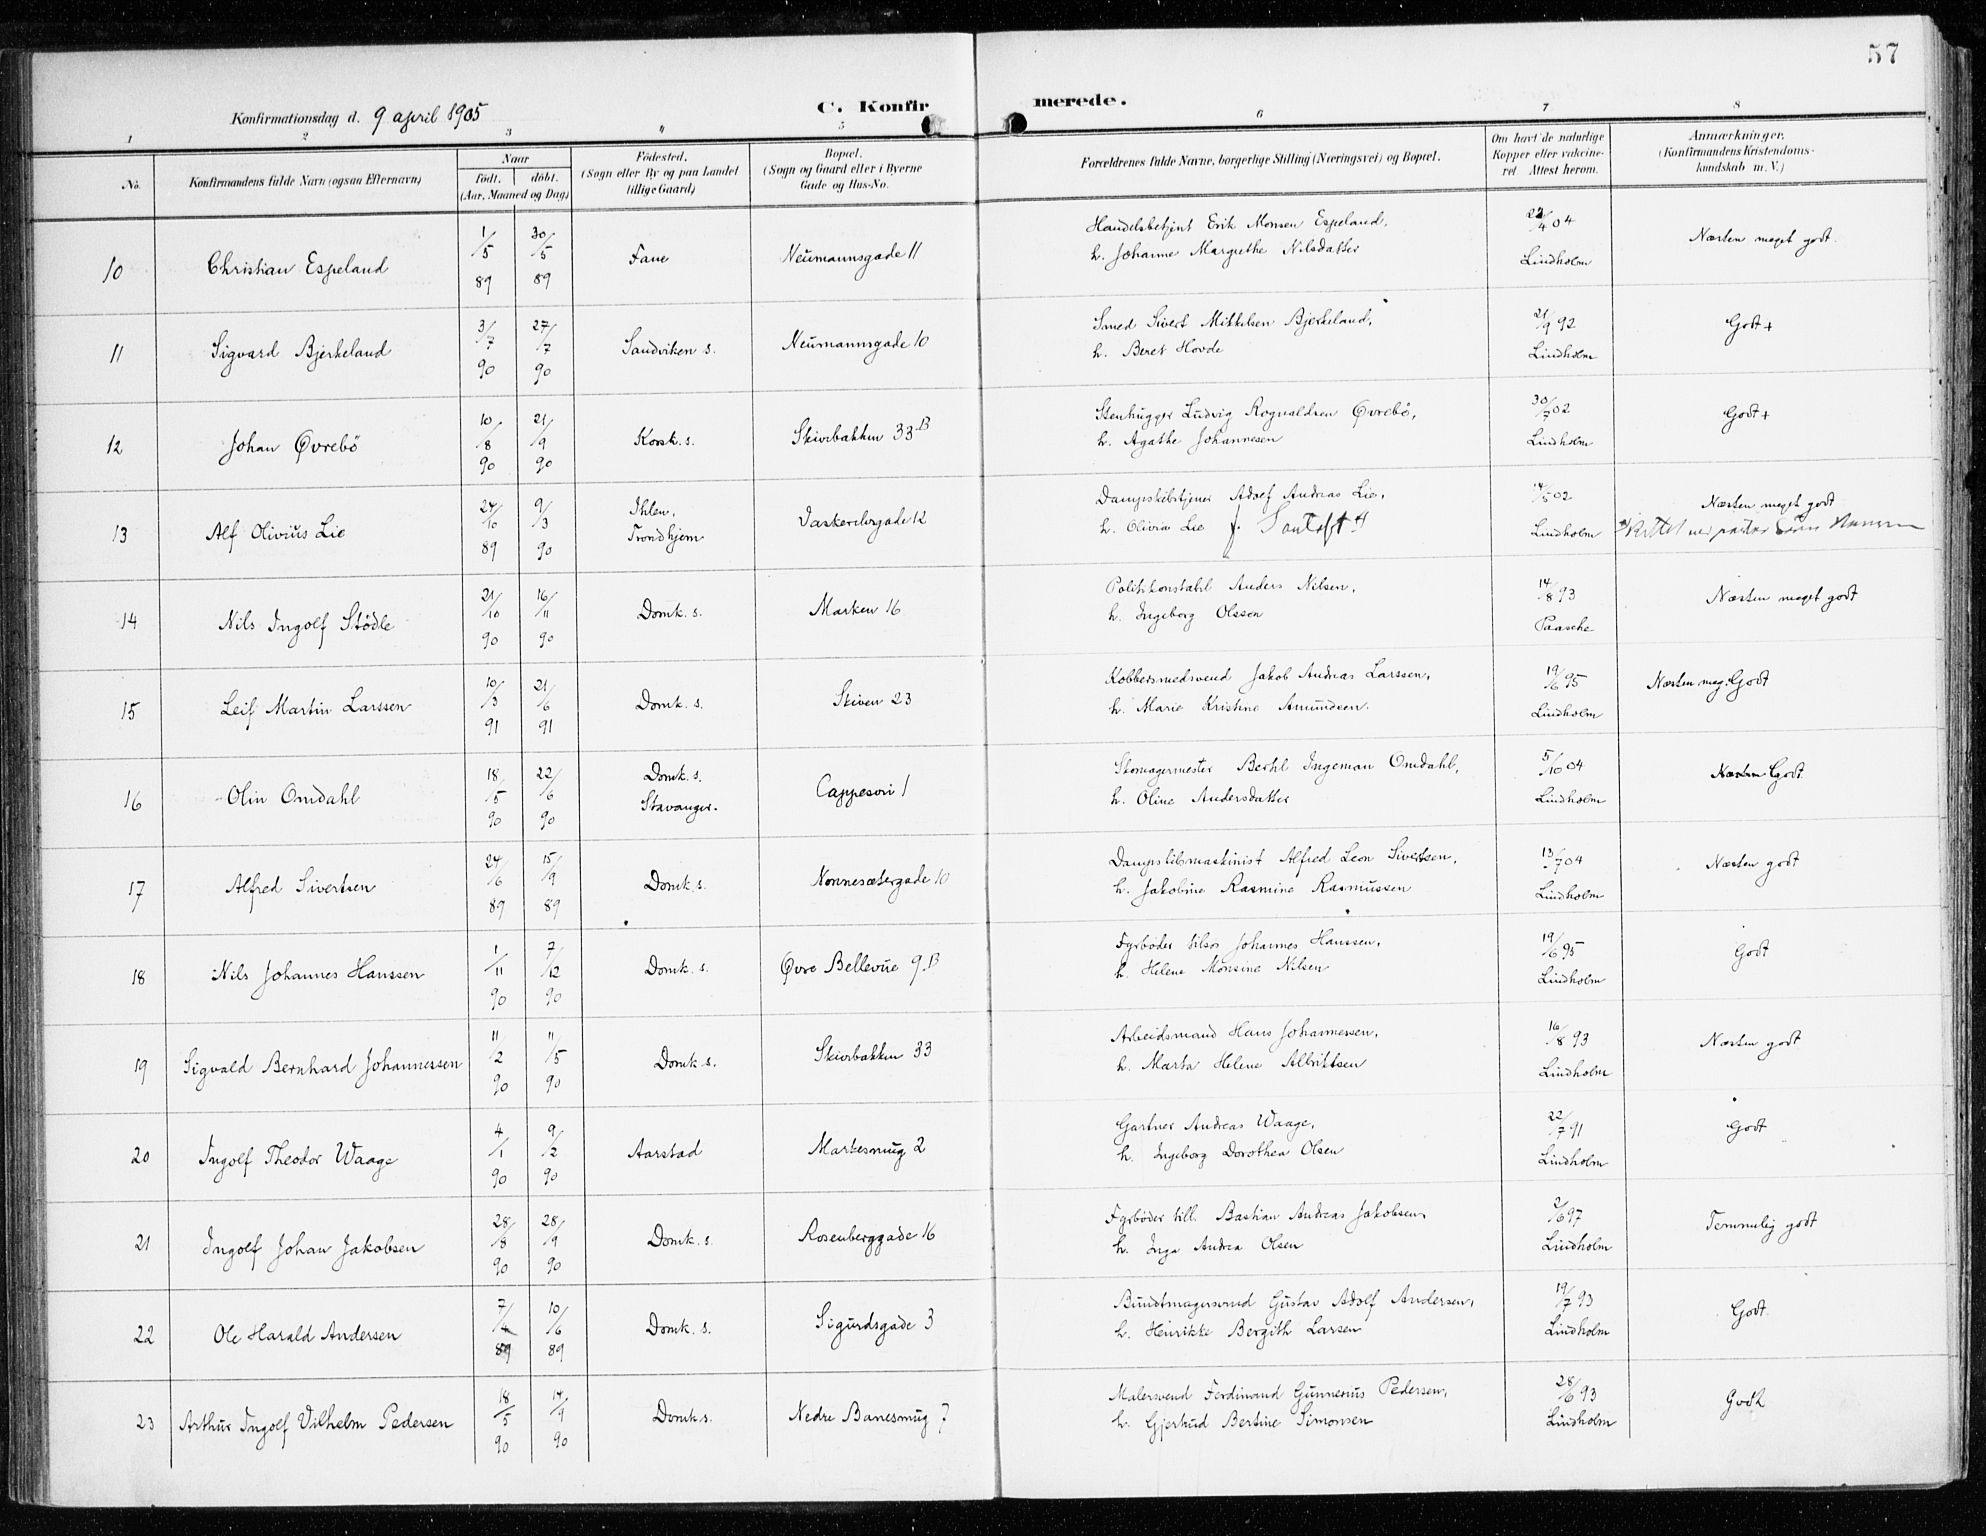 57
Konfirmationsdag d. 9 april 1905
C. Konfirmerede.
1 2 3 " 5 6 7 8
No. Konfirmandens fulde Navn (ogsaa Efternavn) Naar födt. döbt. (Aar, Maaned og Dag) Födested. (Sogn eller By og paa Landet tillige Gaard) Bopæl. (Sogn og Gaard eller i Byerne Gade og Hus-No. Forældrenes fulde Navne, borgerlige Stilling (Næringsvei) og Bopæl. Om havt de naturlige Kopper eller vakcineret Attest herom. Anmærkninger. (Konfirmandens Kristendomskundskab m. V.)
10 Christian Espeland 1/5 89 30/5 89 Fane Neumannsgade 11 Handelsbetjent Erik Monsen Espeland, h. Johanne Margrethe Nilsdatter /4 04 Lindholm Næsten meget godt.
11 Sigvard Bjerkeland 3/7 90 27/7 90 Sandviken s. Neumannsgade 10 Smed Sivert Mikkelsen Bjerkeland, h. Beret Hovde 21/9 92 Lindholm Godt +
12 Johan Øvrebö 10/8 90 21/9 90 Korsk. s. Skivebakken 33 B Stenhugger Ludvig Rognaldsen Øvrebö, h. Agathe Johannesen 02 Lindholm Godt +
13 Alf Olivius Lie 24/10 89 9/3 90 Ihlen, Trondhjem Vaskerelvgade 12 Dampskibstjener Adolf Andreas Lie, h. Olivia Lie f. /5 02 Lindholm Næsten meget godt
14 Nils Ingolf Stödle 21/10 90 16/11 90 Domk. s. Marken 16 Politikonstabl Anders Nilsen, h. Ingeborg Olsson 14/8 93 Paasche Næsten meget godt
15 Leif Martin Larssen 10/3 91 21/6 91 Domk. s. Skiven 23 Kobbersmedsvend Jakob Andreas Larssen, h. Marie Kristine Amundsen. 19/6 95 Lindholm Næsten meg. Godt
16 Olin Omdahl 18/5 90 22/6 90 Domk. s. Stavanger. Cappesvei 1 Skomagermester Berhl Ingeman Omdahl, h. Oline Andersdatter 5/10 04 Lindholm Næsten Godt.
17 Alfred Sivertsen 24/6 89 15/9 89 Domk. s. Nonnesætergade 10 Dampskibsmaskinist Alfred Leon Sivertsen, h. Jakobine Rasmine Rasmussen 13/7 04 Lindholm Næsten godt
18 Nils Johannes Hanssen 1/11 90 7/12 90 Domk. s. Øvre Bellevue 9 B Fyrböder tilsös Johannes Hanssen, h. Helene Monsine Nilsen 19/6 95 Lindholm Godt
19 Sigvald Bernhard Johannessen 11/2 90 11/5 90 Domk. s. Skivebakken 33 Arbeidsmand Hans Johannessen, h. Marta Helene Albriktsen 16/8 93 Lindholm Næsten godt
20 Ingolf Theodor Waage 4/1 90 9/2 90 Aarstad Markesmug 2 Gartner Andreas Waage, h. Ingeborg Dorothea Olsen 22/7 91 Lindholm Godt
21 Ingolf Johan Jakobsen 28/8 90 28/9 90 Domk. s. Rosenberggade 16 Fyrböder till. Bastian Andreas Jakobsen, h. Inga Andrea Olsen 2/6 97 Lindholm Temmelig godt
22 Ole Harald Andersen 7/4 89 10/6 89 Domk. s. Sigurdsgade 3 Bundtmagersvend Gustav Adolf Andersen, h. Henrikke Bergith Larsen 19/7 93 Lindholm Godt.
23 Arthur Ingolf Vilhelm Pedersen 18/5 90 14/9 90 Domk. s. Nedre Banesmug 7 Malersvend Ferdinand Gunnerius Pedersen, h. Gjertrud Bertine Simonsen 28/6 93 Lindholm Godt